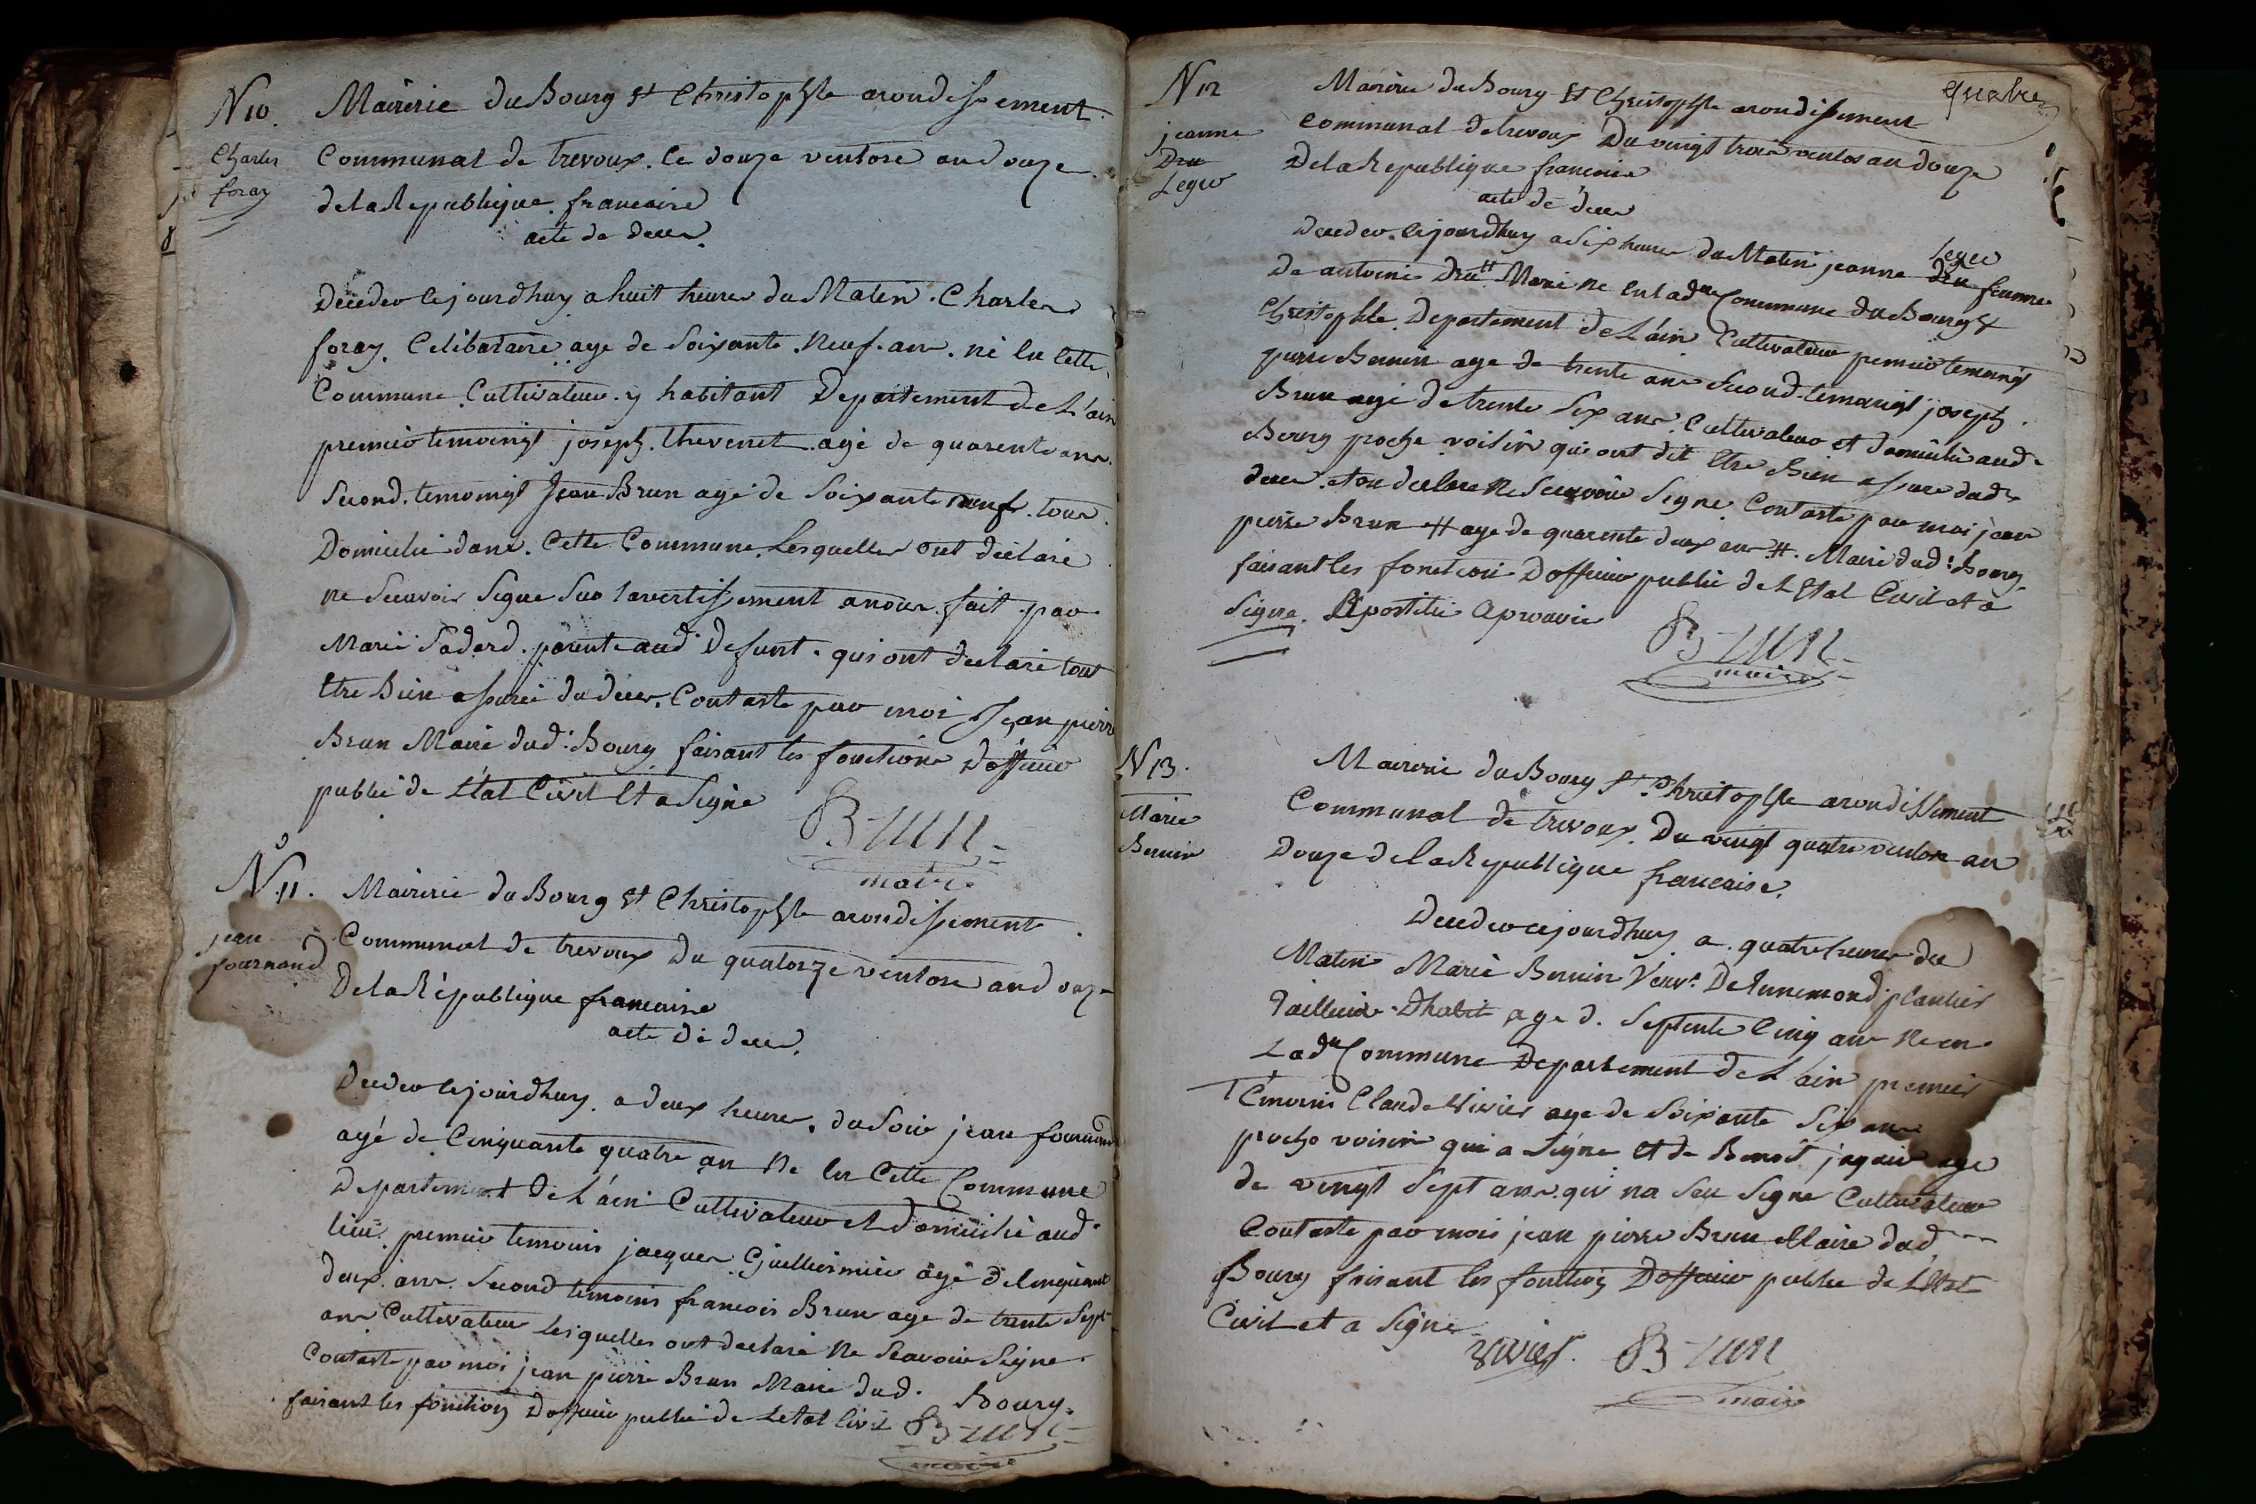 N 10.
Charles
foray
Mairerie du Bourg St Christophle arondissement
Communal de trevoux. le douze ventose an douze
de la Republique francaise
acte de deces.
Decedes cejourdhuy a huit heures du Matin. Charles
foray. Celibataire age de Soixante. Neuf. ans. né en Cette
Commune. Cultivateur. y habitant Departement de L'ain
premier temoingt joseph. thevenet. agé de quarente ans.
Second. temoingt Jean Brun agé de Soixante neuf. tous
Domicilié dans. Cette Commune. Lesquelles ont déclaré
ne Scavoir Signe Sur lavertissement a nous. fait. par
Marie fadard. parente aud. Defunt. qui ont declaré tout
Etre Bien assuré du deces. Contaste par moi Jean pierre
Brun Maire dud. Bourg faisant les fonctions Dofficier
public de L'état Civil Et a Signé
Brun
maire
N° 11.
jean
fournand
Mairerie du Bourg St Christophle arondissement
Communal de trevoux Du quatorze ventose an douze
De la République francaise
acte dé deces.
Decedes cejourdhuy. a deux heures. du Soir jean fournand
agé de Cinquante quatre an Né en Cette Commune
Departement de L'ain Cultivateur et Domicilié aud.
lieu. premier temoins jacques Guillerminer âgé de Cinquante
deux. ans. Second temoins francois Brun age de trente Sept
ans Cultivateur Lesquelles ont declaré Ne Scavoir Signe
Contaste par moi jean pierre Brun Maire dud.
Bourg.
faisant les fonctions Dofficier public de Letat Civil
Brun
maire
quatre
N 12
jeanne
Dru
Leger
Mairerie du Bourg St Christophle arondissement
communal de trevoux Du vingt trois ventos an douze
De la Republique francaise
acte dé déces
Decedes. cejourdhuy a Six heures du Matin jeanne dru femme
Leger
De antoine Drutt Marie Né En Lad.e Commune du Bourg St
Christophle. Departement de L'ain Cultivateur premier temoingt
pierre Bernin age de trente ans Second. temoingt joseph.
Brun agé de trente Six ans. Cultivateur et domicilié aud.
Bourg proche voisin qui ont dit Etre Bien assure dud.
deces. et on declare Ne Scavoir Signe Contaste par moi jean
pierre Brun # age de quarente deux ans #. Maire dud. Bourg
faisant les fonction Dofficier public de L'Etat Civil et a
Signe. Apostille aprouvée
Brun
maire
N 13.
Marie
Bernin
Mairerie du Bourg St Christophle arondissement
Communal de trevoux. Du vingt quatre ventose an
Douze de la Republique francaise.
Decedes cejourdhuy a. quatre heures du
Matin Marie Bernin Veuve. De Ennemond plantier
Tailleur. Dhabit age d. Septente Cinq ans Né en
Lad.e Commune Departement de L'ain premier
Témoins Claude Vivier age de Soixante Six ans
proche voisin qui a Signé et de Benoit jaquier age
de vingt Sept ans. qui na Seu Signe Cultivateur
Contaste par mois jean pierre Brun Maire dud
Bourg faisant les fonctions Dofficier public de L'Etat
Civil et a Signe
Vivier. Brun
maire